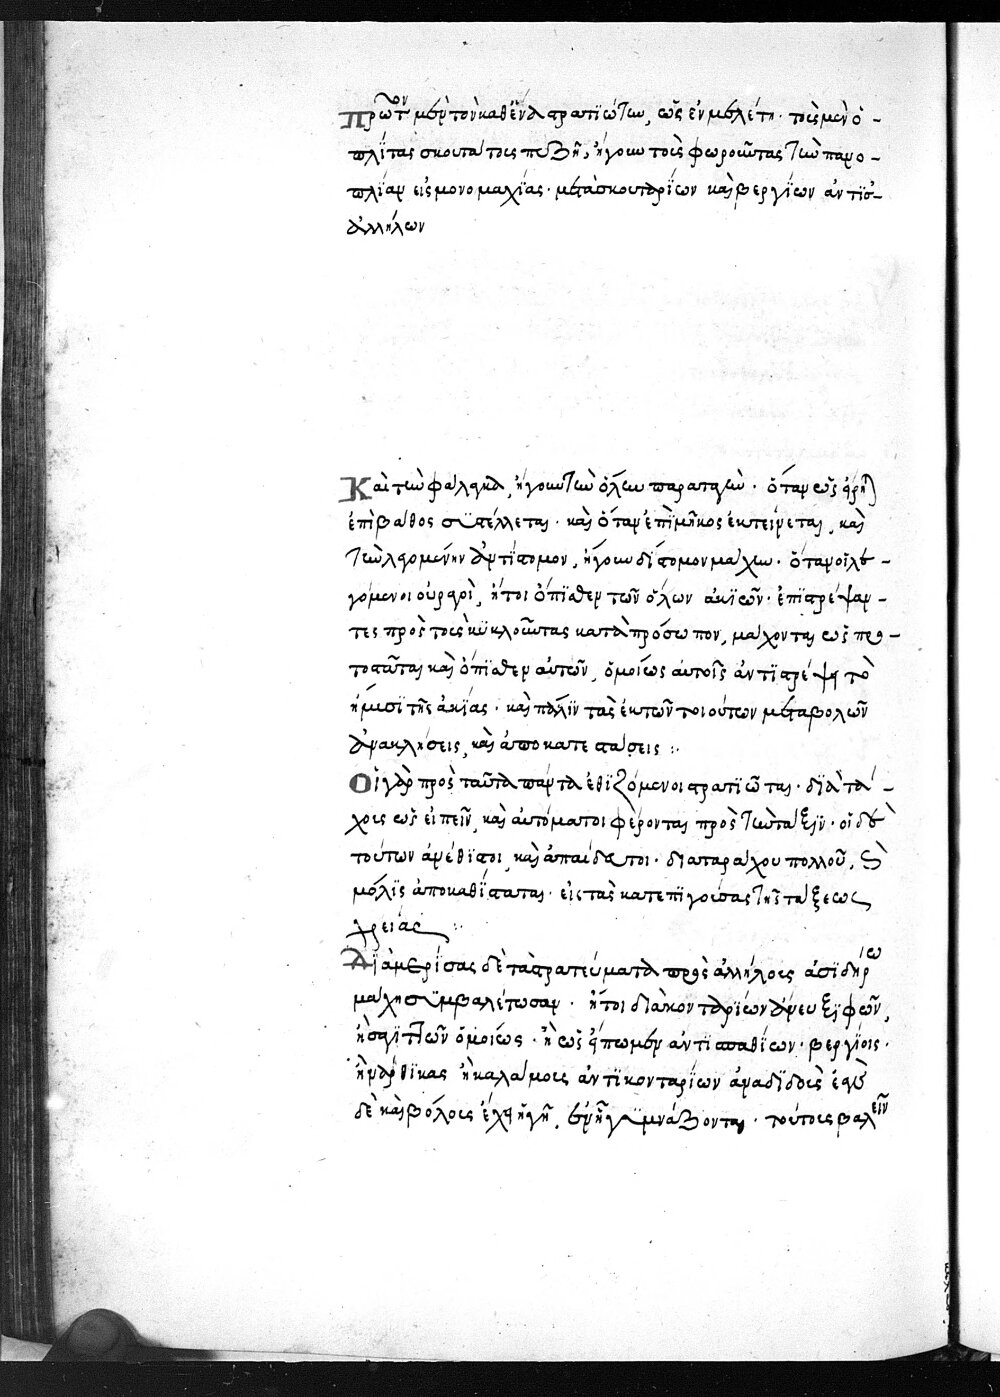 Πρῶτον μὲν τὸν καθένα στρατϊώτην, ὡς ἐν μελέτη· τοὺς μὲν ὁ-
πλΐτας σκουτάτους πεζοὺς, ἤγουν τοὺς φωροῦντας τὴν πανο-
πλΐαν εἰς μονομαχΐας· μετὰ σκουταρΐων καὶ βεργΐων ἀντϊσ-
ἀλλήλων
Καὶ τὴν φάλαγγα, ἤγουν τὴν ὅλην παραταγὴν· ὅταν ὡς
ἐπὶ βάθος συστέλλεται· καὶ ὅταν ἐπὶ μῆκος ἐκτείνεται, καὶ
τὴν λεγομένην ἀντίστομον, ἤγουν δΐστομον μάχην· ὅταν οἱ λε-
γόμενοι οὐραγοὶ, ἤτοι ὀπΐσθεν τῶν ὅλων ἀκϊῶν· ἐπϊστρέψαν-
τες πρὸς τοὺς κϋκλοῦντας κατὰ πρόσωπον, μάχονται ὡς πρω-
τοστᾶται καὶ ὀπΐσθεν αὐτῶν, ὁμοίως αὐτοῖς ἀντϊστρέψη τὸ
ἥμισϊ τῆς ἀκΐας· καὶ πάλϊν τὰς ἐκ τῶν τοιούτων μεταβολῶν
ἀνακλήσεις, καὶ ἀποκατεστάσεις :·
Οἱ γὰρ πρὸς ταῦτα πάντα ἐθϊζόμενοι στρατϊῶται· δϊὰ τά-
χους ὡς εἰπεῖν, καὶ αὐτόματοι φέρονται πρὸς τὴν τάξϊν· οἱ δὲ
τούτων ἀνέθϊστοι, καὶ ἀπαίδευτοι· διαταράχου πολλοῦ,
μόλϊς ἀποκαθΐσταται· εἰς τὰς κατεπϊγούσας τῆς τάξεως
χρείας :·
Δϊαμερΐσας δὲ τὰ στρατεύματα πρὸς ἀλλήλους ἀσϊδήρω
μάχη συμβαλέτωσαν· ἤτοι διὰ κονταρΐων ἄνευ ξϊφῶν,
ἢ σαγϊττῶν ὁμοίως· ἢ ὡς εἴπωμεν ἀντὶ σπαθΐων· βεργΐοις·
ἢ νάρθϊκας ἢ καλάμους ἀντὶ κονταρΐων ἀναδϊδοὺς
δὲ καὶ βόλους ἔχη ἡ γῆ, γϋμνάζονται· τούτοις βαλεῖν